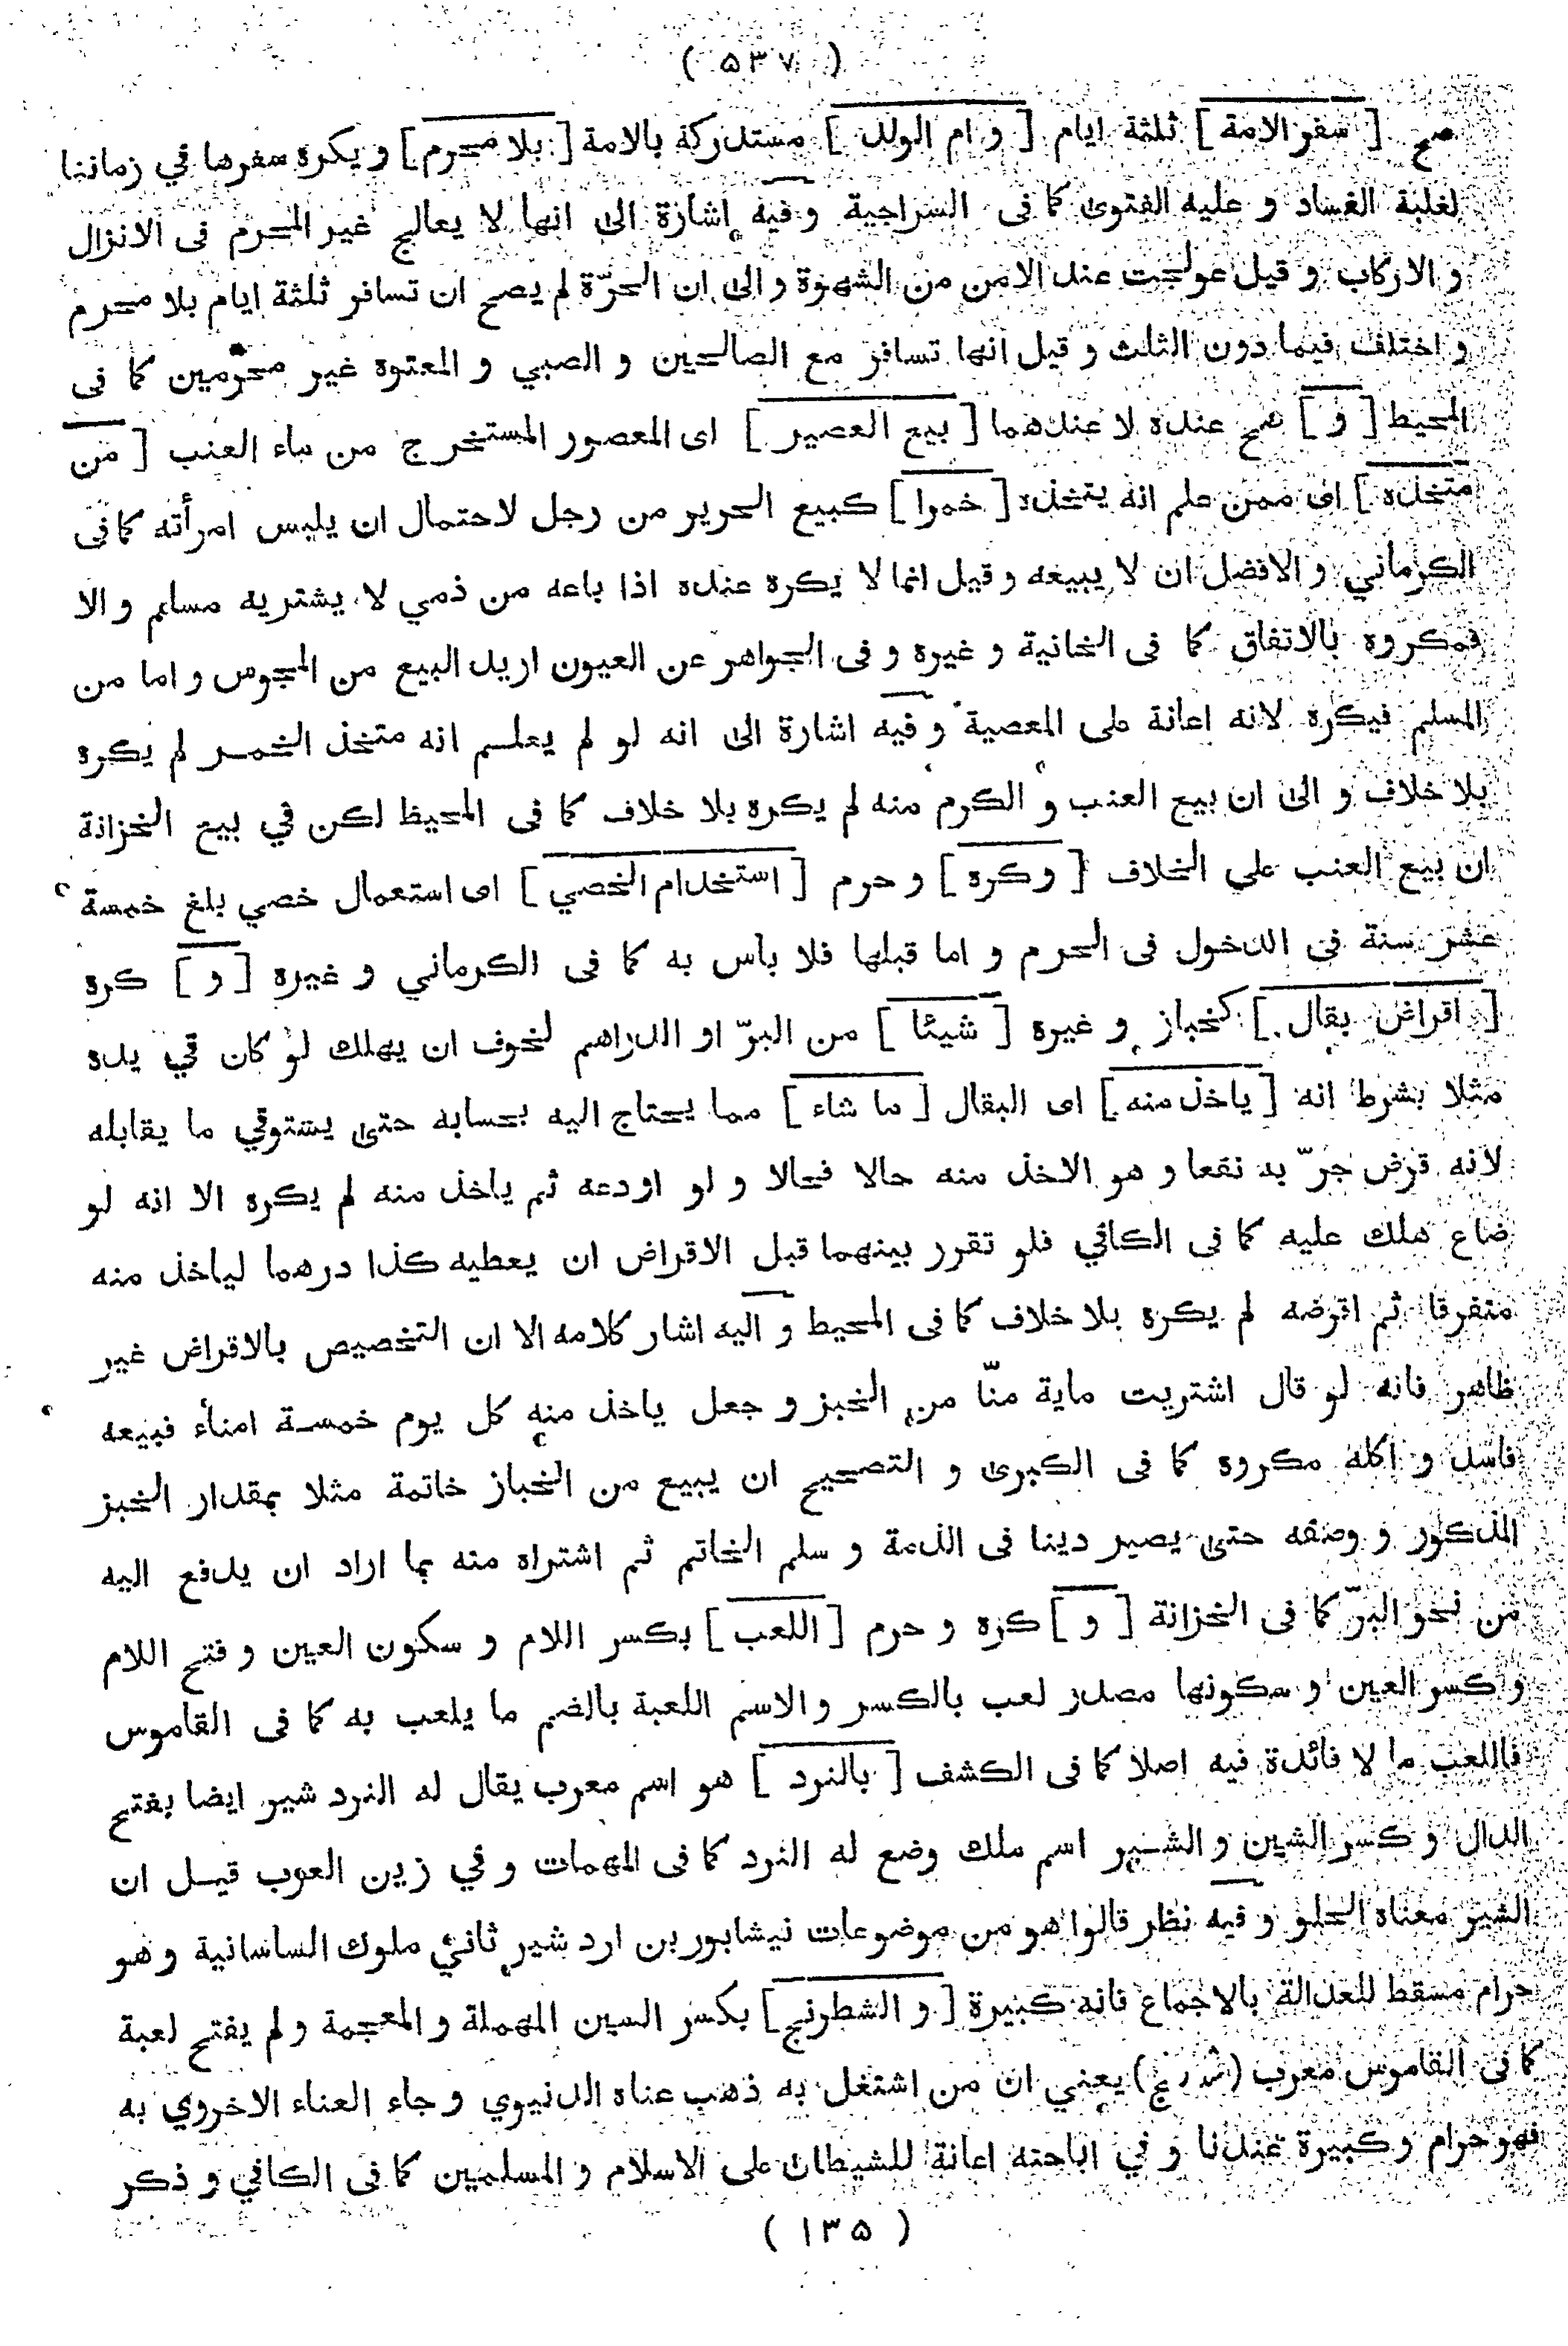 ( ۵۳۷ )
صح [ سفر الامة ] ثلثة ايام [ و ام الولد ] مستدركة بالامة [ بلا محرم ] و يكره سفرها في زماننا
لغلبة الفساد و عليه الفتوى كما فى السراجية و فيه اشارة الى انها لا يعالج غير المحرم فى الانزال
و الاركاب و قيل عولجت عند الامن من الشهوة و الى ان الحرّة لم يصح ان تسافر ثلثة ايام بلا محرم
و اختلف فيما دون الثلث و قيل انها تسافر مع الصالحين و الصبي و المعتوه غير محرمين كما فى
المحيط [ و ] صح عنده لا عندهما [ بيع العصير ] اى المعصور المستخرج من ماء العنب [ من
متخذه ] اى ممن علم انه يتخذه [ خمرا ] كبيع الحرير من رجل لاحتمال ان يلبس امرأته كما فى
الكرماني و الافضل ان لا يبيعه و قيل انما لا يكره عنده اذا باعه من ذمي لا يشتريه مسلم و الا
فمكروه بالاتفاق كما فى الخانية و غيره و فى الجواهر عن العيون اريد البيع من المجوس و اما من
المسلم فيكره لانه اعانة على المعصية و فيه اشارة الى انه لو لم يعلم انه متخذ الخمر لم يكره
بلا خلاف و الى ان بيع العنب و الكرم منه لم يكره بلا خلاف كما فى المحيط لكن في بيع الخزانة
ان بيع العنب علي الخلاف [ و كره ] و حرم [ استخدام الخصي ] اى استعمال خصي بلغ خمسة
عشر سنة فى الدخول فى الحرم و اما قبلها فلا بأس به كما فى الكرماني و غيره [ و ] كره
[ اقراض بقال ] كخباز و غيره [ شيئا ] من البرّ او الدراهم لخوف ان يهلك لو كان في يده
مثلا بشرط انه [ ياخذ منه ] اى البقال [ ما شاء ] مما يحتاج اليه بحسابه حتى يستوفي ما يقابله
لانه قرض جرّ به نفعا و هو الاخذ منه حالا فحالا و لو اودعه ثم ياخذ منه لم يكره الا انه لو
ضاع هلك عليه كما فى الكافي فلو تقرر بينهما قبل الاقراض ان يعطيه كذا درهما لياخذ منه
متفرقا ثم اقرضه لم يكره بلا خلاف كما فى المحيط و اليه اشار كلامه الا ان التخصيص بالاقراض غير
ظاهر فانه لو قال اشتريت ماية منّا من الخبز و جعل ياخذ منه كل يوم خمسة امناء فبيعه
فاسد و اكله مكروه كما فى الكبرى و التصحيح ان يبيع من الخباز خاتمة مثلا بمقدار الخبز
المذكور و وصفه حتى يصير دينا فى الذمة و سلم الخاتم ثم اشتراه منه بما اراد ان يدفع اليه
من نحو البرّ كما فى الخزانة [ و ] كره و حرم [ اللعب ] بكسر اللام و سكون العين و فتح اللام
و كسر العين و سكونها مصدر لعب بالكسر و الاسم اللعبة بالضم ما يلعب به كما فى القاموس
فاللعب ما لا فائدة فيه اصلا كما فى الكشف [ بالنرد ] هو اسم معرب يقال له النرد شير ايضا بفتح
الدال و كسر الشين و الشير اسم ملك وضع له النرد كما فى المهمات و في زين العرب قيل ان
الشير معناه الحلو و فيه نظر قالوا هو من موضوعات نيشابور بن ارد شير ثاني ملوك الساسانية و هو
حرام مسقط للعدالة بالاجماع فانه كبيرة [ و الشطرنج ] بكسر السين المهملة و المعجمة و لم يفتح لعبة
كما فى القاموس معرب يعني ان من اشتغل به ذهب عناه الدنيوي و جاء العناء الاخروي به
فهو حرام و كبيرة عندنا و في اباحته اعانة للشيطان على الاسلام و المسلمين كما فى الكافي و ذكر
( ۱۳۵ )